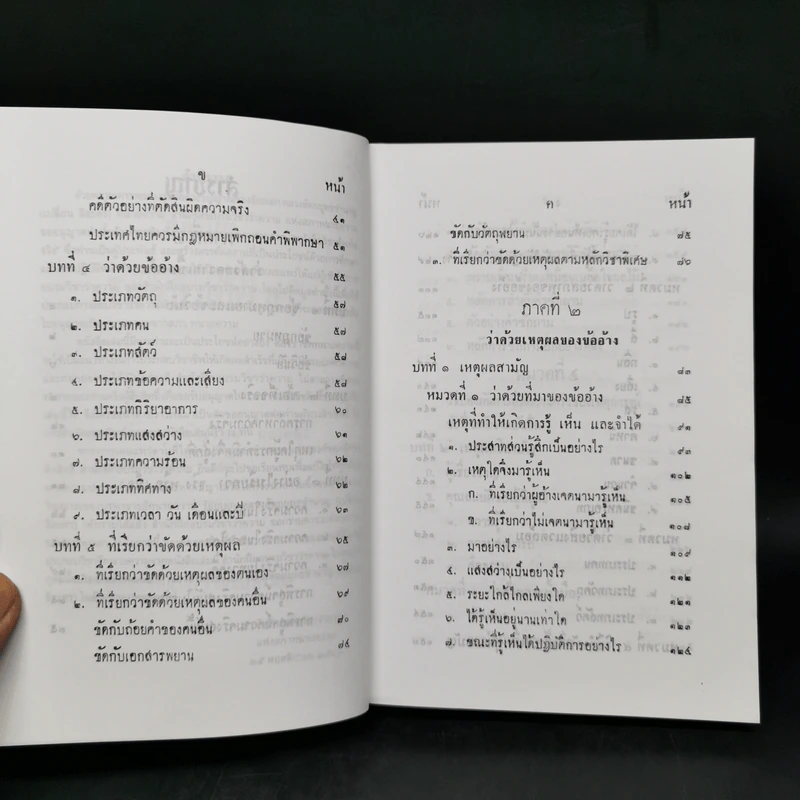 ข
หน้า
คดีตัวอย่างที่ตัดสินผิดความจริง ๔๑
ประเทศไทยควรมีกฎหมายเพิกถอนคำพิพากษา ๕๑
บทที่ ๔ ว่าด้วยข้ออ้าง ๕๕
๑. ประเภทวัตถุ ๕๗
๒. ประเภทคน ๕๗
๓. ประเภทสัตว์ ๕๘
๔. ประเภทข้อความและเสียง ๕๘
๕. ประเภทกิริยาอาการ ๖๐
๖. ประเภทแสงสว่าง ๖๑
๗. ประเภทความร้อน ๖๒
๘. ประเภททิศทาง ๖๒
๙. ประเภทเวลา วัน เดือนและปี ๖๓
บทที่ ๕ ที่เรียกว่าขัดด้วยเหตุผล ๖๕
๑. ที่เรียกว่าขัดด้วยเหตุผลของตนเอง ๖๗
๒. ที่เรียกว่าขัดด้วยเหตุผลของคนอื่น ๖๙
ขัดกับถ้อยคำของคนอื่น ๗๐
ขัดกับเอกสารพยาน ๗๔
ค
หน้า
ขัดกับวัตถุพยาน ๗๕
๓. ที่เรียกว่าขัดด้วยเหตุผลตามหลักวิชาพิเศษ ๗๖
ภาคที่ ๒
ว่าด้วยเหตุผลของข้ออ้าง
บทที่ ๑ เหตุผลสามัญ ๘๓
หมวดที่ ๑ ว่าด้วยที่มาของข้ออ้าง ๘๕
เหตุที่ทำให้เกิดการรู้ เห็น และจำได้ ๙๑
๑. ประสาทส่วนรู้สึกเป็นอย่างไร ๙๓
๒. เหตุใดจึงมารู้เห็น ๑๐๒
ก. ที่เรียกว่าผู้อ้างเจตนามารู้เห็น ๑๐๕
ข. ที่เรียกว่าไม่เจตนามารู้เห็น ๑๐๗
๓. มาอย่างไร ๑๐๙
๔. แสงสว่างเป็นอย่างไร ๑๑๒
๕. ระยะใกล้ไกลเพียงใด ๑๒๑
๖. ได้รู้เห็นอยู่นานเท่าใด ๑๒๓
๗. ขณะที่รู้เห็นได้ปฏิบัติการอย่างไร ๑๒๕